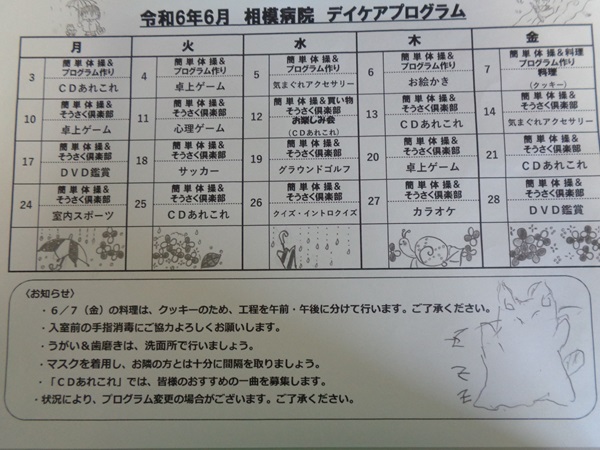 令和6年6月 相模病院 デイケアプログラム
月 火 水 木 金
3 簡単体操&
プログラム作り
CDあれこれ
4 簡単体操&
プログラム作り
卓上ゲーム
5 簡単体操&
プログラム作り
気まぐれアクセサリー
6 簡単体操&
プログラム作り
お絵かき
7 簡単体操&料理
プログラム作り
料理
(クッキー)
10 簡単体操&
そうさく倶楽部
卓上ゲーム
11 簡単体操&
そうさく倶楽部
心理ゲーム
12 簡単体操&買い物
そうさく倶楽部
お楽しみ会
(CDあれこれ)
13 簡単体操&
そうさく倶楽部
CDあれこれ
14 簡単体操&
そうさく倶楽部
気まぐれアクセサリー
17 簡単体操&
そうさく倶楽部
DVD鑑賞
18 簡単体操&
そうさく倶楽部
サッカー
19 簡単体操&
そうさく倶楽部
グラウンドゴルフ
20 簡単体操&
そうさく倶楽部
卓上ゲーム
21 簡単体操&
そうさく倶楽部
CDあれこれ
24 簡単体操&
そうさく倶楽部
室内スポーツ
25 簡単体操&
そうさく倶楽部
CDあれこれ
26 簡単体操&
そうさく倶楽部
クイズ・イントロクイズ
27 簡単体操&
そうさく倶楽部
カラオケ
28 簡単体操&
そうさく倶楽部
DVD鑑賞
〈お知らせ〉
・6/7(金)の料理は、クッキーのため、工程を午前・午後に分けて行います。ご了承ください。
・入室前の手指消毒にご協力よろしくお願いします。
・うがい&歯磨きは、洗面所で行いましょう。
・マスクを着用し、お隣の方とは十分に間隔を取りましょう。
・「CDあれこれ」では、皆様のおすすめの一曲を募集します。
・状況により、プログラム変更の場合がございます。ご了承ください。